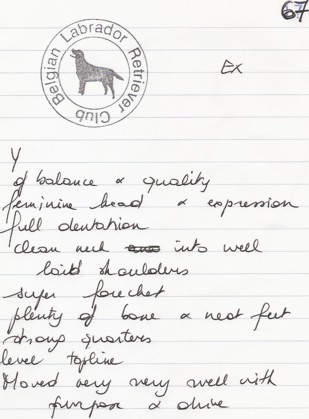 67
Belgian Labrador Retriever Club
Ex
Y
of balance & quality
feminine head & expression
full dentation
clean neck into well
laid shoulders
super forechest
plenty of bone & neat feet
strong quarters
level topline
Moved very very well with
purpose & drive